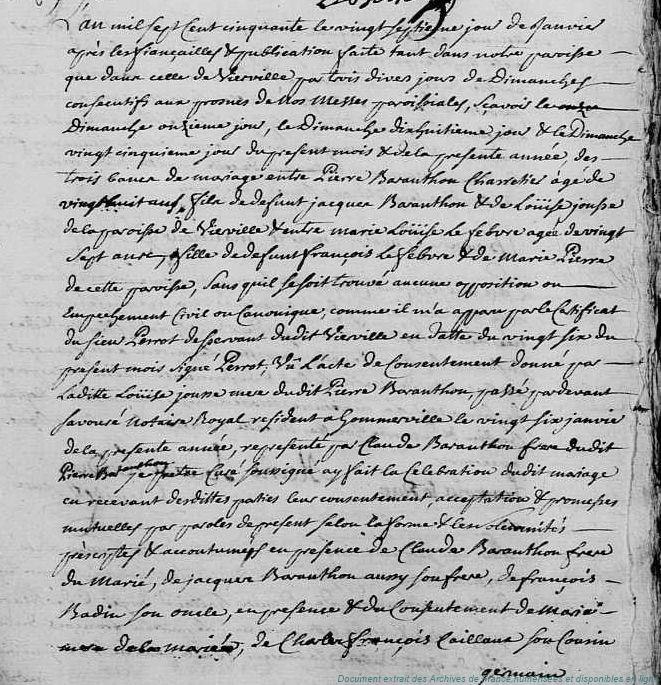 L'an mil sept Cent cinquante le vingt septieme jour de Janvier
apres les fiançailles & publication faite tant dans notre paroisse
que dans celle de Vierville par trois divers jours de Dimanches
consecutifs aux prosnes de Nos Messes paroissiales, sçavoir le
Dimanche onzieme jour, le Dimanche dixhuitieme jour & le Dimanche
vingt cinquieme jour du present mois & de la presente année, des
trois bancs de mariage entre Pierre Baranthon Charretier âgé de
vingt huit ans, fils de defunt jacques Baranthon & de Loüise jousse
de la paroisse de Vierville & entre marie Loüise Le febvre agee de vingt
sept ans, fille de defunt françois Le febvre & de Marie Pierre
de cette paroisse, sans qu'il se soit trouvé aucune opposition ou
Empechement Civil ou Canonique, comme il m'a apparu par le Certificat
du sieur Perrot desservant dudit Vierville en datte du vingt six du
present mois signé Perrot, Vû L'acte de Consentement donné par
Laditte Loüise jousse mere dudit Pierre Baranthon, passé pardevant
savouré Notaire Royal resident a Gommerville le vingt six janvier
de la presente année, representé par Claude Baranthon frere dudit
Pierre Baranthon je pretre Curé soussigné ay fait la Celebration dudit mariage
en recevant desdittes parties leur consentement, acceptation & promesses
mutuelles par paroles de present selon la forme & les solemnités
prescrites & accoutumées en presence de Claude Baranthon frere
du Marié, de jacques Baranthon aussy son frere, de françois
Badin son oncle, en presence & du Consentement de Marie
mere de la Mariée, de Charles françois Caillaux son Cousin
germain
Document extrait des Archives de France numérisées et disponibles en ligne